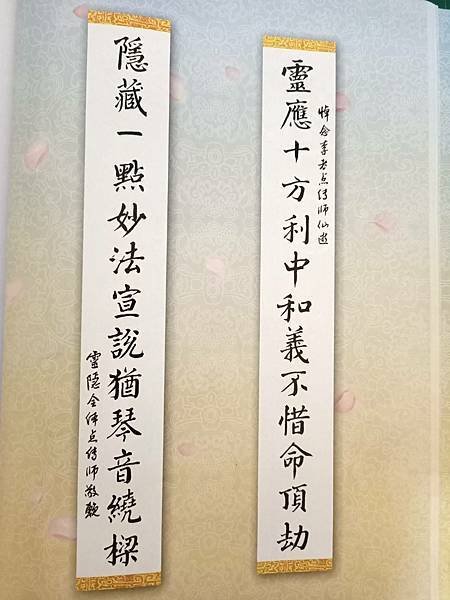 靈應十方利中和義不惜命頂劫
悼念李老点传师仙逝
隱藏一點妙法宣説猶琴音繞樑
靈隱全体点传师敬輓